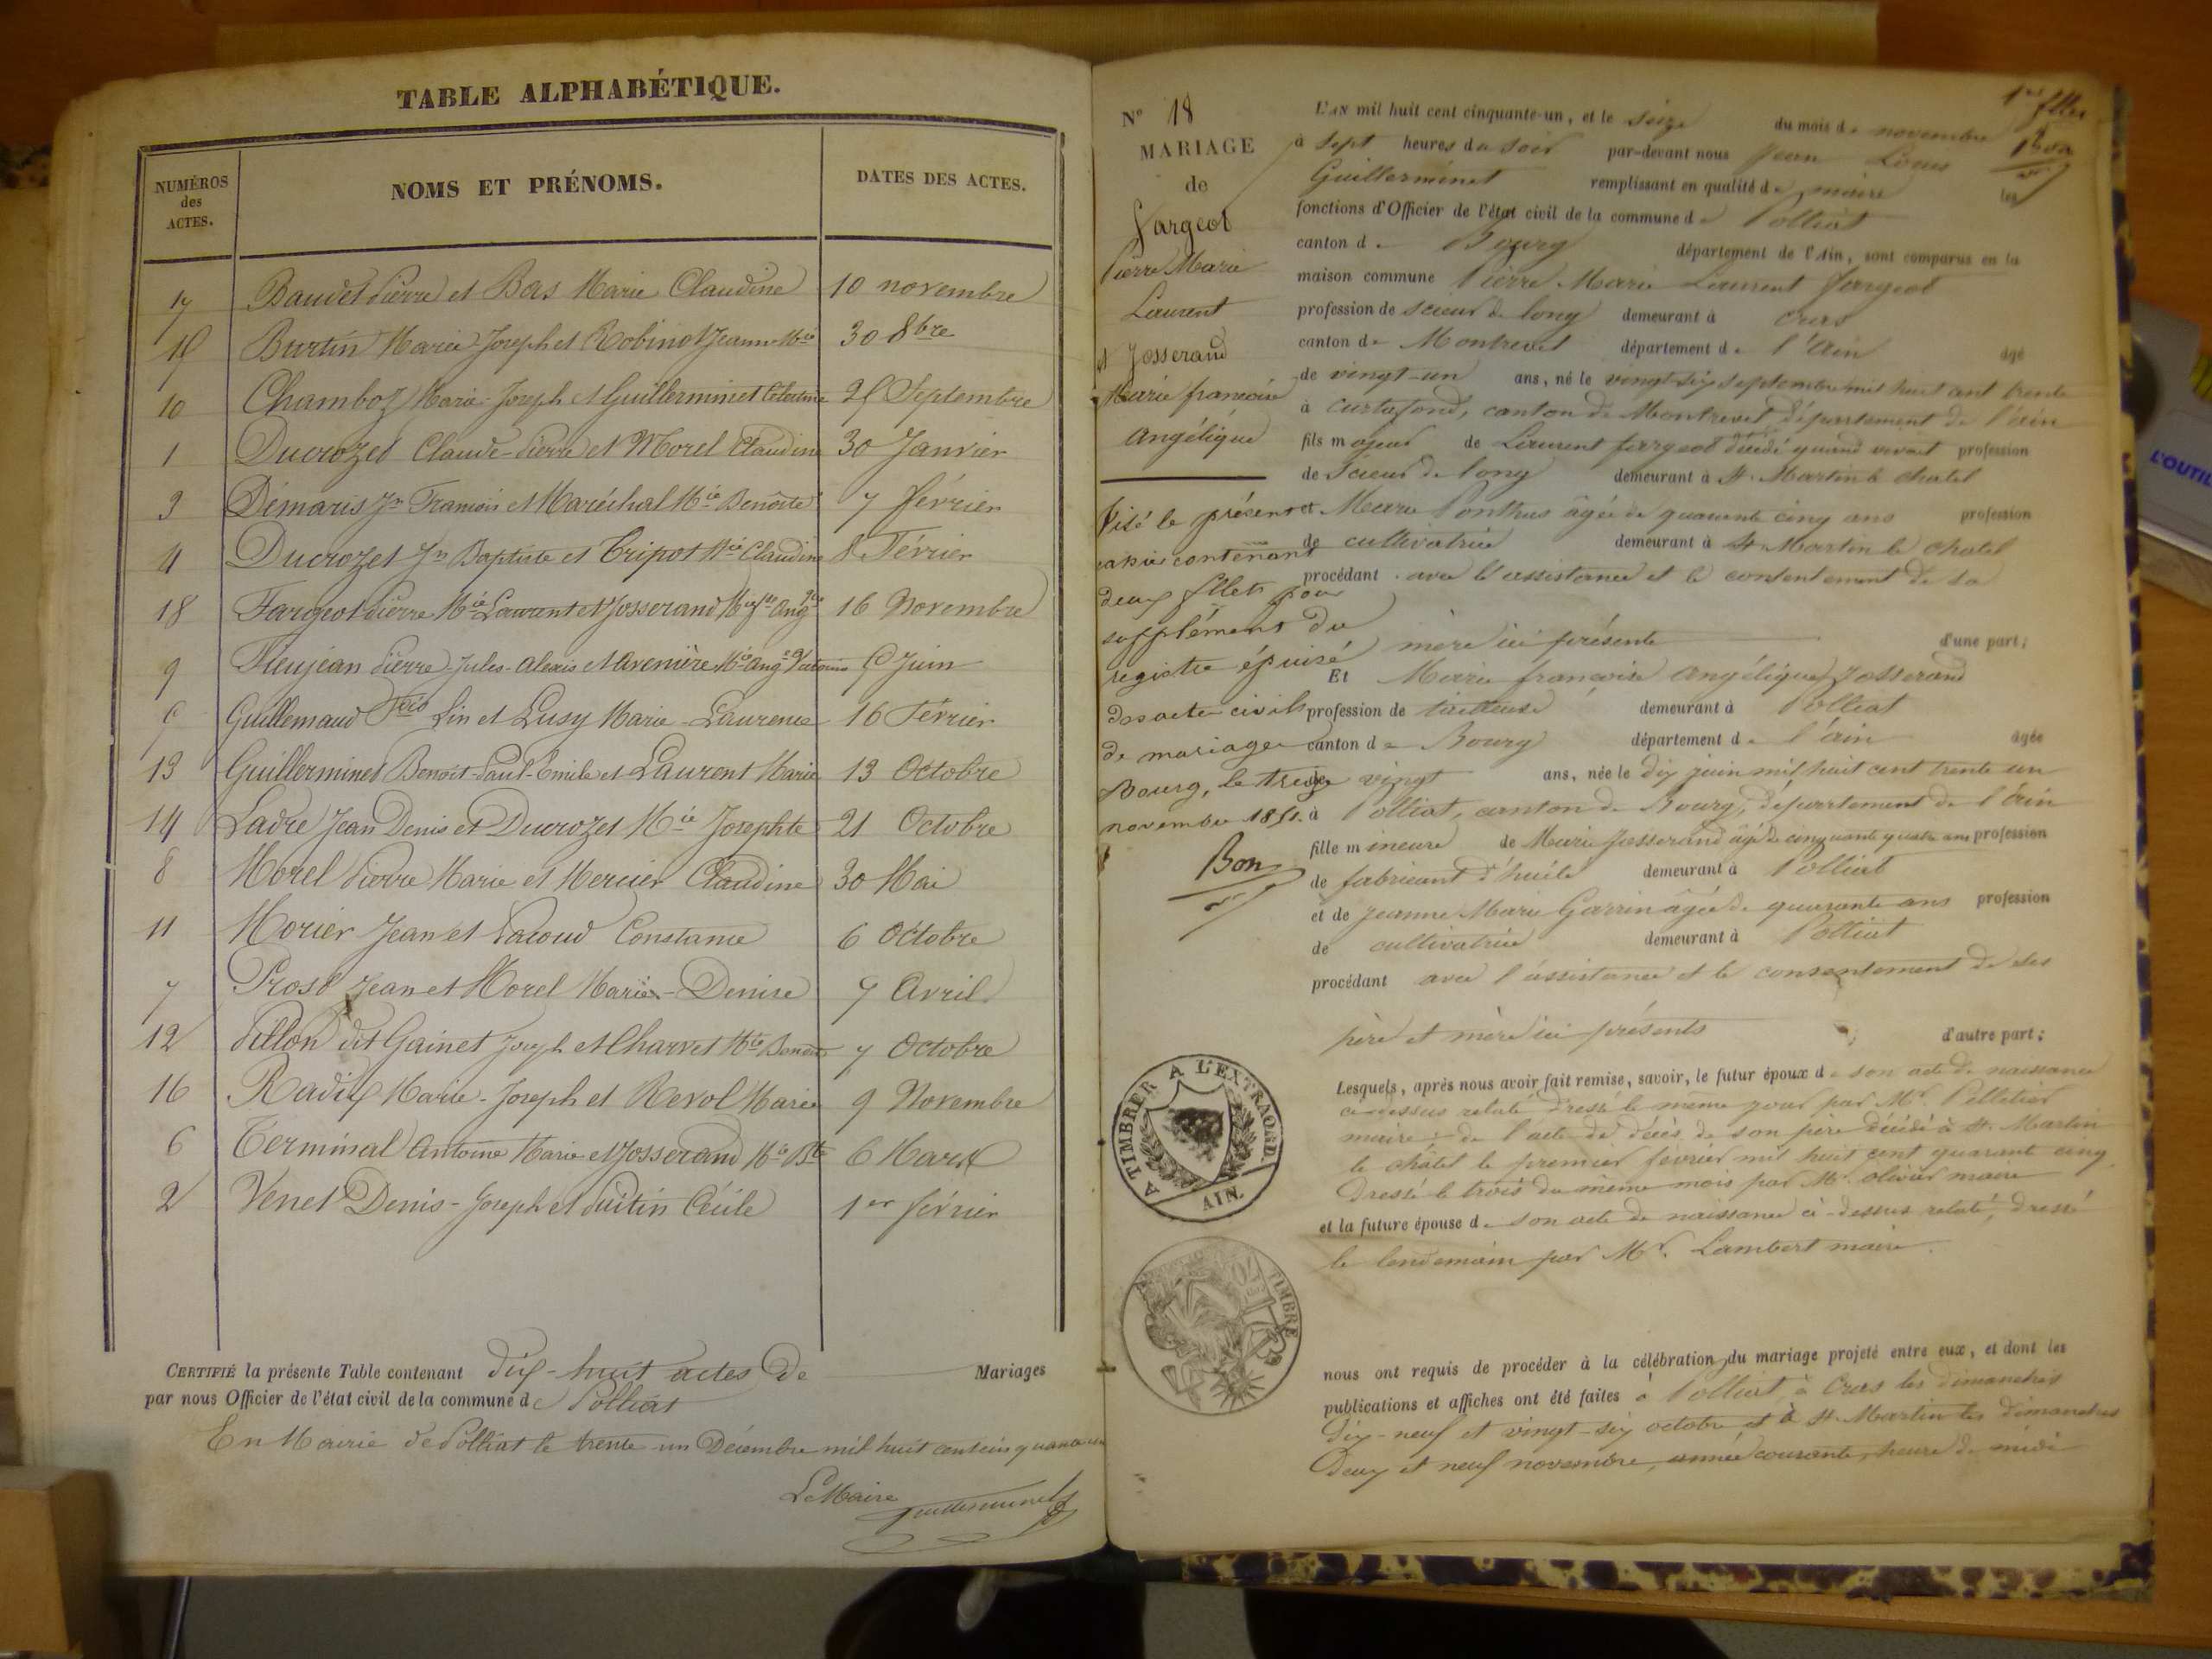 TABLE ALPHABÉTIQUE.
NUMÉROS des ACTES.
NOMS ET PRÉNOMS.
DATES DES ACTES.
17 Baudet Pierre et Bas Marie Claudine 10 novembre
Burtin Marie Joseph et Robinot Jeanne Mie 30 8bre
10 Chamboz Marie-Joseph et Guillerminet Septembre
1 Ducrozet Claude-Pierre et Morel Claudine 30 Janvier
3 Démaris Jn François et Maréchal Mie Benoite 7 février
4 Ducrozet Jn Baptiste et Tripot Mie Claudine 8 Février
18 Fargeot Pierre Mie Laurent et Josserand 16 Novembre
9 Fleujean Pierre Jules-Alexis et Avenière Juin
Guillemaud Fois Lin et Lusy Marie-Laurence 16 Février
13 Guillerminet Benoit-Paul-Emile et Laurent Marie 13 Octobre
14 Ladre Jean Denis et Ducrozet Mie Josephte 21 Octobre
8 Morel Pierre Marie et Mercier Claudine 30 Mai
11 Morier Jean et Pacoud Constance 6 Octobre
7 Prost Jean et Morel Marie-Denise 7 Avril
12 Pillon dit Gainet Joseph et Charvet 7 Octobre
16 Radix Marie-Joseph et Revol Marie 9 Novembre
6 Terminal Antoine Marie et Josserand Mie Bte 6 Mars
2 Venet Denis-Joseph et Puitin Cécile 1er février
CERTIFIÉ la présente Table contenant dix-huit actes de Mariages
par nous Officier de l'état civil de la commune de Polliat
En Mairie de Polliat le trente-un Décembre mil huit cent cinquante un
Le Maire
Guillerminet
No 18
MARIAGE
de
Fargeot
Pierre Marie
Laurent
et Josserand
Marie françoise
Angélique
Visé le présent
contenant
deux fllets pour
supplément du
registre épuisé
des actes civils
de mariage
Bourg, le treize
novembre 1851.
Bon
1er fllet
L'AN mil huit cent cinquante-un, et le seize du mois de novembre
à sept heures du soir par-devant nous Jean Louis
Guillerminet remplissant en qualité de maire les
fonctions d'Officier de l'état civil de la commune de Polliat
canton de Bourg département de l'Ain, sont comparus en la
maison commune Pierre Marie Laurent fargeot
profession de scieur de long demeurant à Cras
canton de Montrevel département de l'Ain âgé
de vingt-un ans, né le vingt-six septembre mil huit cent trente
à Curtafond, canton de Montrevel département de l'ain
fils majeur de Laurent fargeot décédé quand vivait profession
de Scieur de long demeurant à St. Martin le chatel
et Marie Ponthus âgée de quarante cinq ans profession
de cultivatrice demeurant à St Martin le chatel
procédant avec l'assistance et le consentement de sa
mère ici présente d'une part;
Et Marie françoise Angélique Josserand
profession de tailleuse demeurant à Polliat
canton de Bourg département de l'ain âgée
de vingt ans, née le dix juin mil huit cent trente un
à Polliat, canton de Bourg, département de l'Ain
fille mineure de Marie Josserand âgé de cinquante quatre ans profession
de fabricant d'huile demeurant à Polliat
et de Jeanne Marie Garrin âgée de quarante ans profession
de cultivatrice demeurant à Polliat
procédant avec l'assistance et le consentement de ses
père et mère ici présents d'autre part;
Lesquels, après nous avoir fait remise, savoir, le futur époux de son acte de naissance
ci-dessus relaté dressé le même jour par Mr. Pelletier
maire; de l'acte de décès de son père décédé à St. Martin
le châtel le premier février mil huit cent quarante cinq
dressé le trois du même mois par Mr. olivier maire
et la future épouse de son acte de naissance ci-dessus relaté, dressé
le lendemain par Mr. Lambert maire.
A TIMBRER A L'EXTRAORD.
AIN.
TIMBRE
nous ont requis de procéder à la célébration du mariage projeté entre eux, et dont les
publications et affiches ont été faites à Polliat, à Cras les dimanches
dix-neuf et vingt-six octobre et à St. Martin les dimanches
deux et neuf novembre, année courante, heure de midi
L'OUTIL